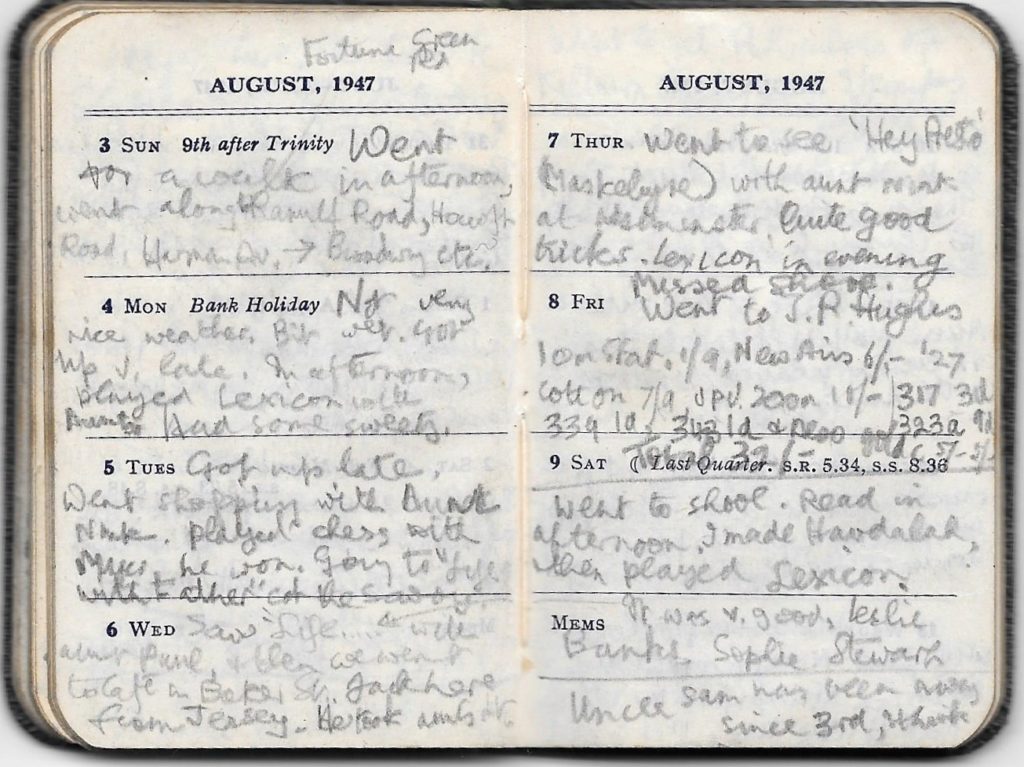 Fortune Green
Rd
AUGUST, 1947
3 SUN 9th after Trinity Went
for a walk in afternoon,
went along Ranulf Road,
Road, → Broadway etc.
4 MON Bank Holiday Not very
nice weather. Bit wet. Got
up v. late. In afternoon,
played Lexicon with
Had some sweets.
5 TUES Got up late.
Went shopping with Aunt
played chess with
he won. Going to "Life
with Father" at the Savoy.
6 WED Saw "Life...." with
aunt & then we went
to café in Baker St. Jack here
from Jersey. He took
AUGUST, 1947
7 THUR Went to see 'Hey Presto'
(Maskelyne) with aunt
at Westminster. Quite good
tricks. Lexicon in evening
Missed shool.
8 FRI Went to J.P. Hughes
10m Stat. 1/9, New 6/- '27
Cotton 7/9 200m 11/- 317 3d
339 1d, 343 1d & 323a 9d
Total 32/- 5/-
9 SAT ☾ Last Quarter. S.R. 5.34, S.S. 8.36
Went to shool. Read in
afternoon. I made Havdalah,
then played Lexicon.
MEMS It was v. good, Leslie
Banks, Sophie Stewart
Uncle Sam has been away
since 3rd, I think